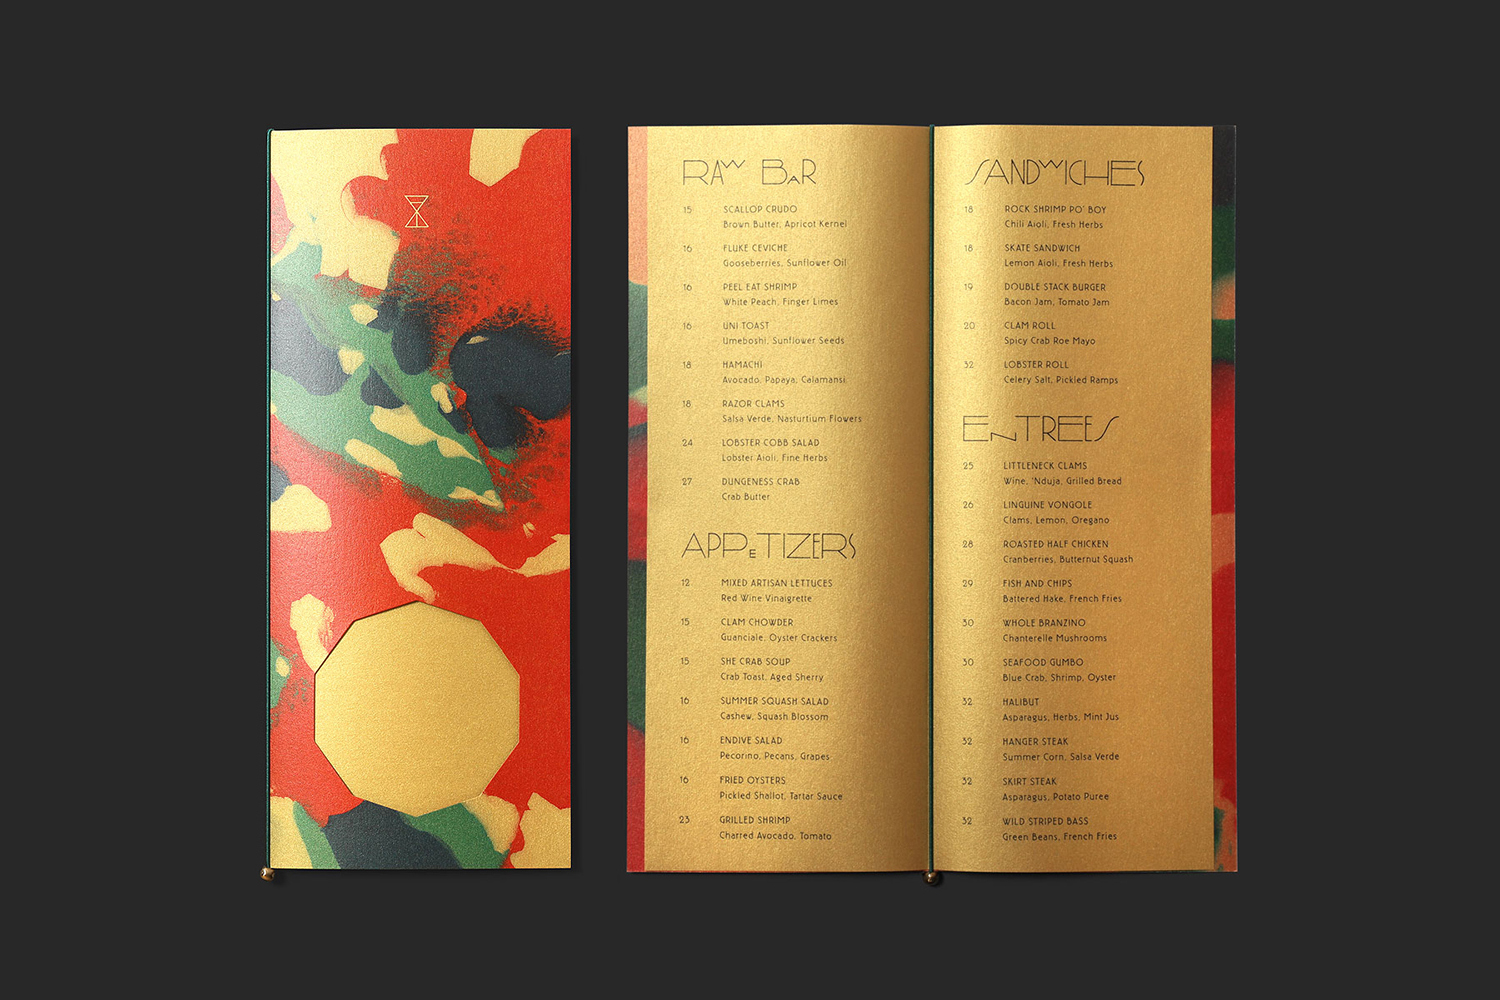 RAW BAR
15 SCALLOP CRUDO
Brown Butter, Apricot Kernel
16 FLUKE CEVICHE
Gooseberries, Sunflower Oil
16 PEEL EAT SHRIMP
White Peach, Finger Limes
16 UNI TOAST
Umeboshi, Sunflower Seeds
18 HAMACHI
Avocado, Papaya, Calamansi
18 RAZOR CLAMS
Salsa Verde, Nasturtium Flowers
24 LOBSTER COBB SALAD
Lobster Aioli, Fine Herbs
27 DUNGENESS CRAB
Crab Butter
APPETIZERS
12 MIXED ARTISAN LETTUCES
Red Wine Vinaigrette
15 CLAM CHOWDER
Guanciale, Oyster Crackers
15 SHE CRAB SOUP
Crab Toast, Aged Sherry
16 SUMMER SQUASH SALAD
Cashew, Squash Blossom
16 ENDIVE SALAD
Pecorino, Pecans, Grapes
16 FRIED OYSTERS
Pickled Shallot, Tartar Sauce
23 GRILLED SHRIMP
Charred Avocado, Tomato
SANDWICHES
18 ROCK SHRIMP PO' BOY
Chili Aioli, Fresh Herbs
18 SKATE SANDWICH
Lemon Aioli, Fresh Herbs
19 DOUBLE STACK BURGER
Bacon Jam, Tomato Jam
20 CLAM ROLL
Spicy Crab Roe Mayo
32 LOBSTER ROLL
Celery Salt, Pickled Ramps
ENTREES
25 LITTLENECK CLAMS
Wine, 'Nduja, Grilled Bread
26 LINGUINE VONGOLE
Clams, Lemon, Oregano
28 ROASTED HALF CHICKEN
Cranberries, Butternut Squash
29 FISH AND CHIPS
Battered Hake, French Fries
30 WHOLE BRANZINO
Chanterelle Mushrooms
30 SEAFOOD GUMBO
Blue Crab, Shrimp, Oyster
32 HALIBUT
Asparagus, Herbs, Mint Jus
32 HANGER STEAK
Summer Corn, Salsa Verde
32 SKIRT STEAK
Asparagus, Potato Puree
32 WILD STRIPED BASS
Green Beans, French Fries